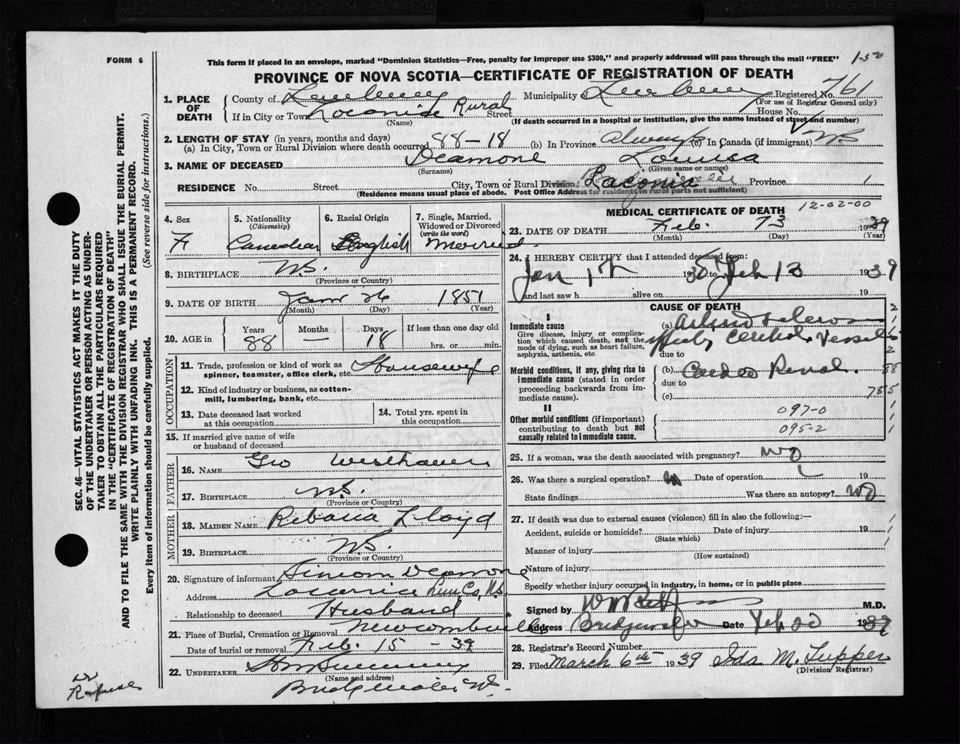 FORM 6
This form if placed in an envelope, marked "Dominion Statistics—Free, penalty for improper use $300," and properly addressed will pass through the mail "FREE"
PROVINCE OF NOVA SCOTIA—CERTIFICATE OF REGISTRATION OF DEATH
1. PLACE OF DEATH
County of Lunenburg Municipality of Lunenburg Registered No. 761
(For use of Registrar General only)
If in City or Town Laconia Rural Street House No.
(Name) (If death occurred in a hospital or institution, give the name instead of street and number)
2. LENGTH OF STAY (in years, months and days)
(a) In City, Town or Rural Division where death occurred 88-18 (b) In Province Always (c) In Canada (if immigrant) NS
3. NAME OF DECEASED Deamone Louisa
(Surname) (Given name or names)
RESIDENCE No. Street City, Town or Rural Division Laconia Province 1
(Residence means usual place of abode. Post Office Address for residents in rural parts not sufficient)
4. Sex F
5. Nationality (Citizenship) Canadian
6. Racial Origin English
7. Single, Married, Widowed or Divorced (write the word) Married
8. BIRTHPLACE NS.
(Province or Country)
9. DATE OF BIRTH Jany 26 1851
(Month) (Day) (Year)
10. AGE in Years 88 Months — Days 18 If less than one day old hrs. or min.
OCCUPATION
11. Trade, profession or kind of work as spinner, teamster, office clerk, etc. Housewife
12. Kind of industry or business, as cotton-mill, lumbering, bank, etc.
13. Date deceased last worked at this occupation
14. Total yrs. spent in this occupation
15. If married give name of wife or husband of deceased
FATHER
16. NAME Geo Westhaver
17. BIRTHPLACE NS.
(Province or Country)
MOTHER
18. MAIDEN NAME Lloyd
19. BIRTHPLACE NS
(Province or Country)
20. Signature of informant Simeon Deamone
Address Laconia Lun Co, NS.
Relationship to deceased Husband
21. Place of Burial, Cremation or Removal Newcombville
Date of burial or removal Feb. 15 - 39
22. UNDERTAKER
(Name and address)
Bridgewater
12-02-00
MEDICAL CERTIFICATE OF DEATH
23. DATE OF DEATH Feb. 13 1939
(Month) (Day) (Year)
24. I HEREBY CERTIFY that I attended deceased from:
Jan 1st to Feb 13 1939
and last saw h alive on 19
CAUSE OF DEATH
I
Immediate cause
Give disease, injury or complication which caused death, not the mode of dying, such as heart failure, asphyxia, asthenia, etc.
(a) Cerebral Vessels
due to
Morbid conditions, if any, giving rise to immediate cause (stated in order proceeding backwards from immediate cause)
(b) Cardio Renal.
due to
(c)
II
Other morbid conditions (if important) contributing to death but not causally related to immediate cause.
097-0
095-2
25. If a woman, was the death associated with pregnancy? No
26. Was there a surgical operation? Date of operation 19
State findings Was there an autopsy? No
27. If death was due to external causes (violence) fill in also the following:—
Accident, suicide or homicide? Date of injury 19
(State which)
Manner of injury
(How sustained)
Nature of injury
Specify whether injury occurred in industry, in home, or in public place
Signed by M.D.
Address Bridgewater Date Feb 20 1939
28. Registrar's Record Number
29. Filed March 6th 1939 Ida M. Tupper
(Division Registrar)
SEC. 46—VITAL STATISTICS ACT MAKES IT THE DUTY
OF THE UNDERTAKER OR PERSON ACTING AS UNDER-
TAKER TO OBTAIN ALL THE PARTICULARS REQUIRED
IN THE "CERTIFICATE OF REGISTRATION OF DEATH"
AND TO FILE THE SAME WITH THE DIVISION REGISTRAR WHO SHALL ISSUE THE BURIAL PERMIT.
WRITE PLAINLY WITH UNFADING INK. THIS IS A PERMANENT RECORD.
Every item of information should be carefully supplied. (See reverse side for instructions.)